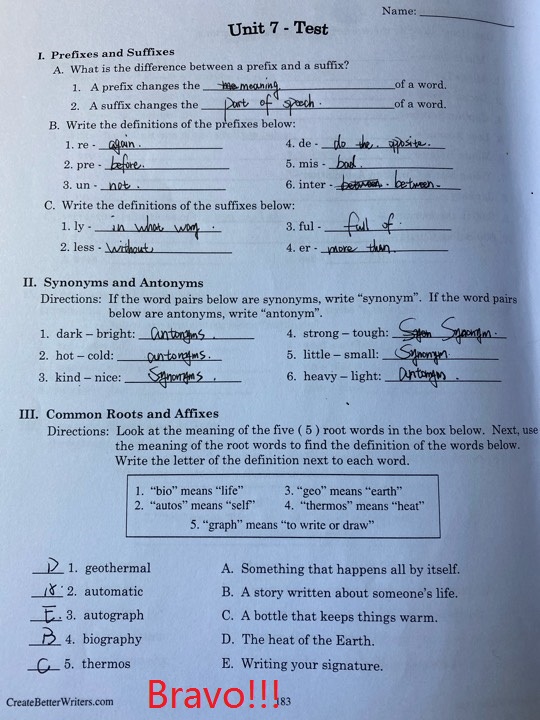 Name:
Unit 7 - Test
I. Prefixes and Suffixes
A. What is the difference between a prefix and a suffix?
1. A prefix changes the the meaning. of a word.
2. A suffix changes the part of speech. of a word.
B. Write the definitions of the prefixes below:
1. re - again. 4. de - do the opposite.
2. pre - before. 5. mis - bad.
3. un - not. 6. inter - between. between.
C. Write the definitions of the suffixes below:
1. ly - in what way. 3. ful - full of.
2. less - without 4. er - more than.
II. Synonyms and Antonyms
Directions: If the word pairs below are synonyms, write “synonym”. If the word pairs
below are antonyms, write “antonym”.
1. dark – bright: antonyms. 4. strong – tough: Synonym.
2. hot – cold: antonyms. 5. little – small: Synonym.
3. kind – nice: Synonyms. 6. heavy – light: antonym.
III. Common Roots and Affixes
Directions: Look at the meaning of the five ( 5 ) root words in the box below. Next, use
the meaning of the root words to find the definition of the words below.
Write the letter of the definition next to each word.
1. “bio” means “life” 3. “geo” means “earth”
2. “autos” means “self” 4. “thermos” means “heat”
5. “graph” means “to write or draw”
D 1. geothermal A. Something that happens all by itself.
2. automatic B. A story written about someone's life.
E. 3. autograph C. A bottle that keeps things warm.
B 4. biography D. The heat of the Earth.
C 5. thermos E. Writing your signature.
CreateBetterWriters.com Bravo!!! 183